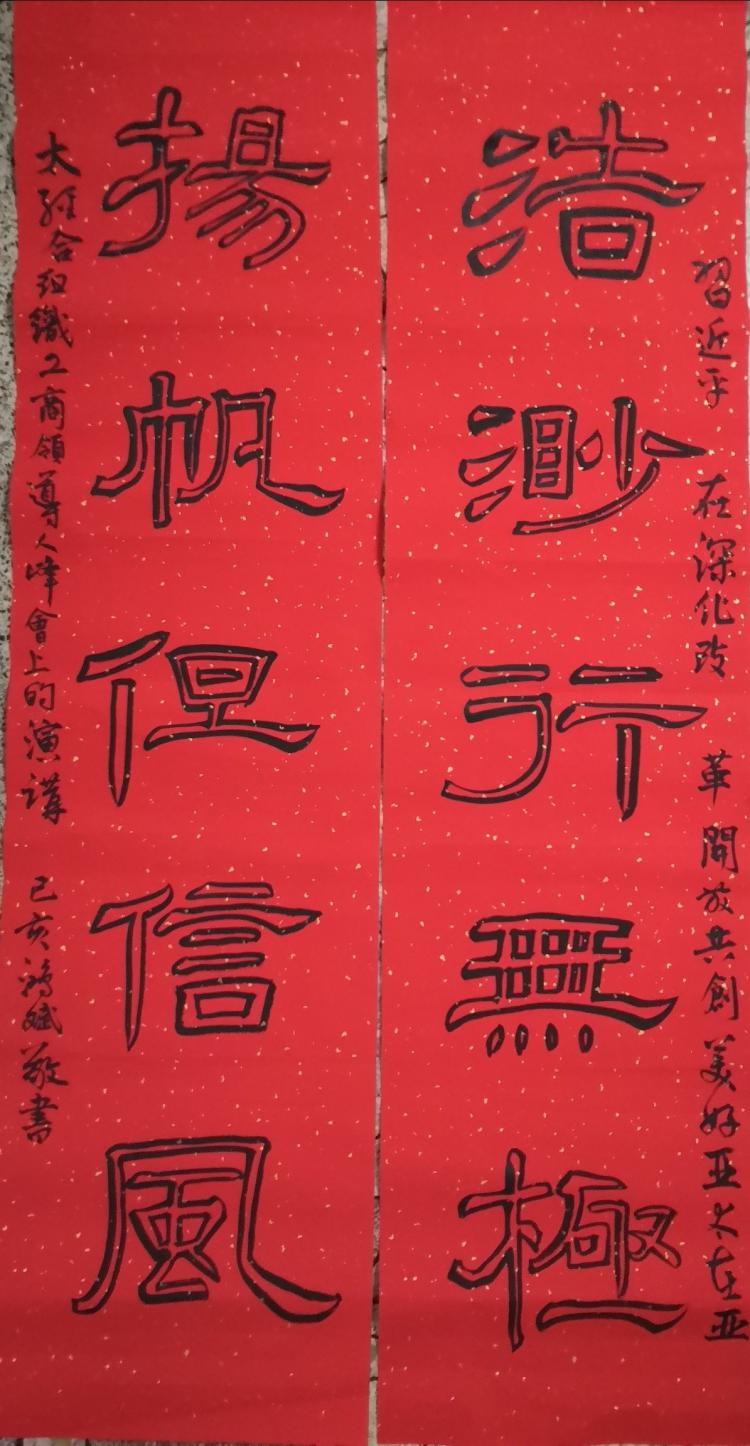 習近平 在深化改 革開放共創美好亚太在亚
浩渺行無極
揚帆但信風
太经合组織工商領導人峰會上的演講 己亥鸿斌敬書